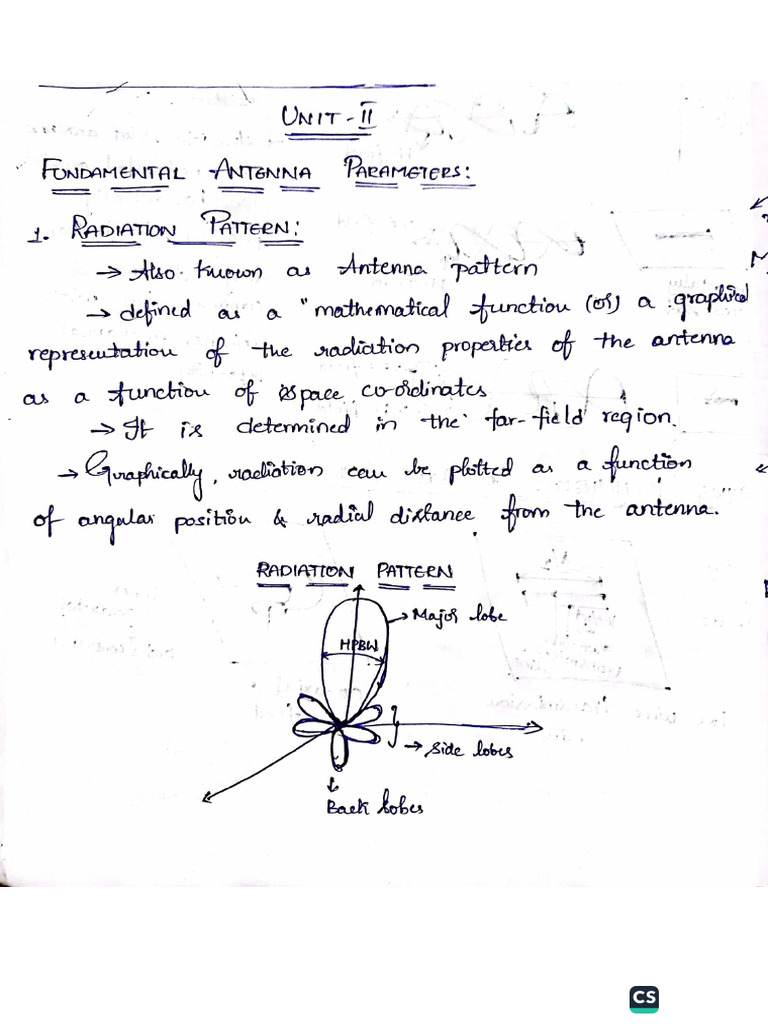 UNIT - II
FUNDAMENTAL ANTENNA PARAMETERS:
1. RADIATION PATTERN:
→ Also known as Antenna pattern
→ defined as a "mathematical function (or) a graphical
representation of the radiation properties of the antenna
as a function of space co-ordinates
→ It is determined in the far-field region.
→ Graphically, radiation can be plotted as a function
of angular position & radial distance from the antenna.
RADIATION PATTERN
→ Major lobe
HPBW
→ Side lobes
Back lobes
CS